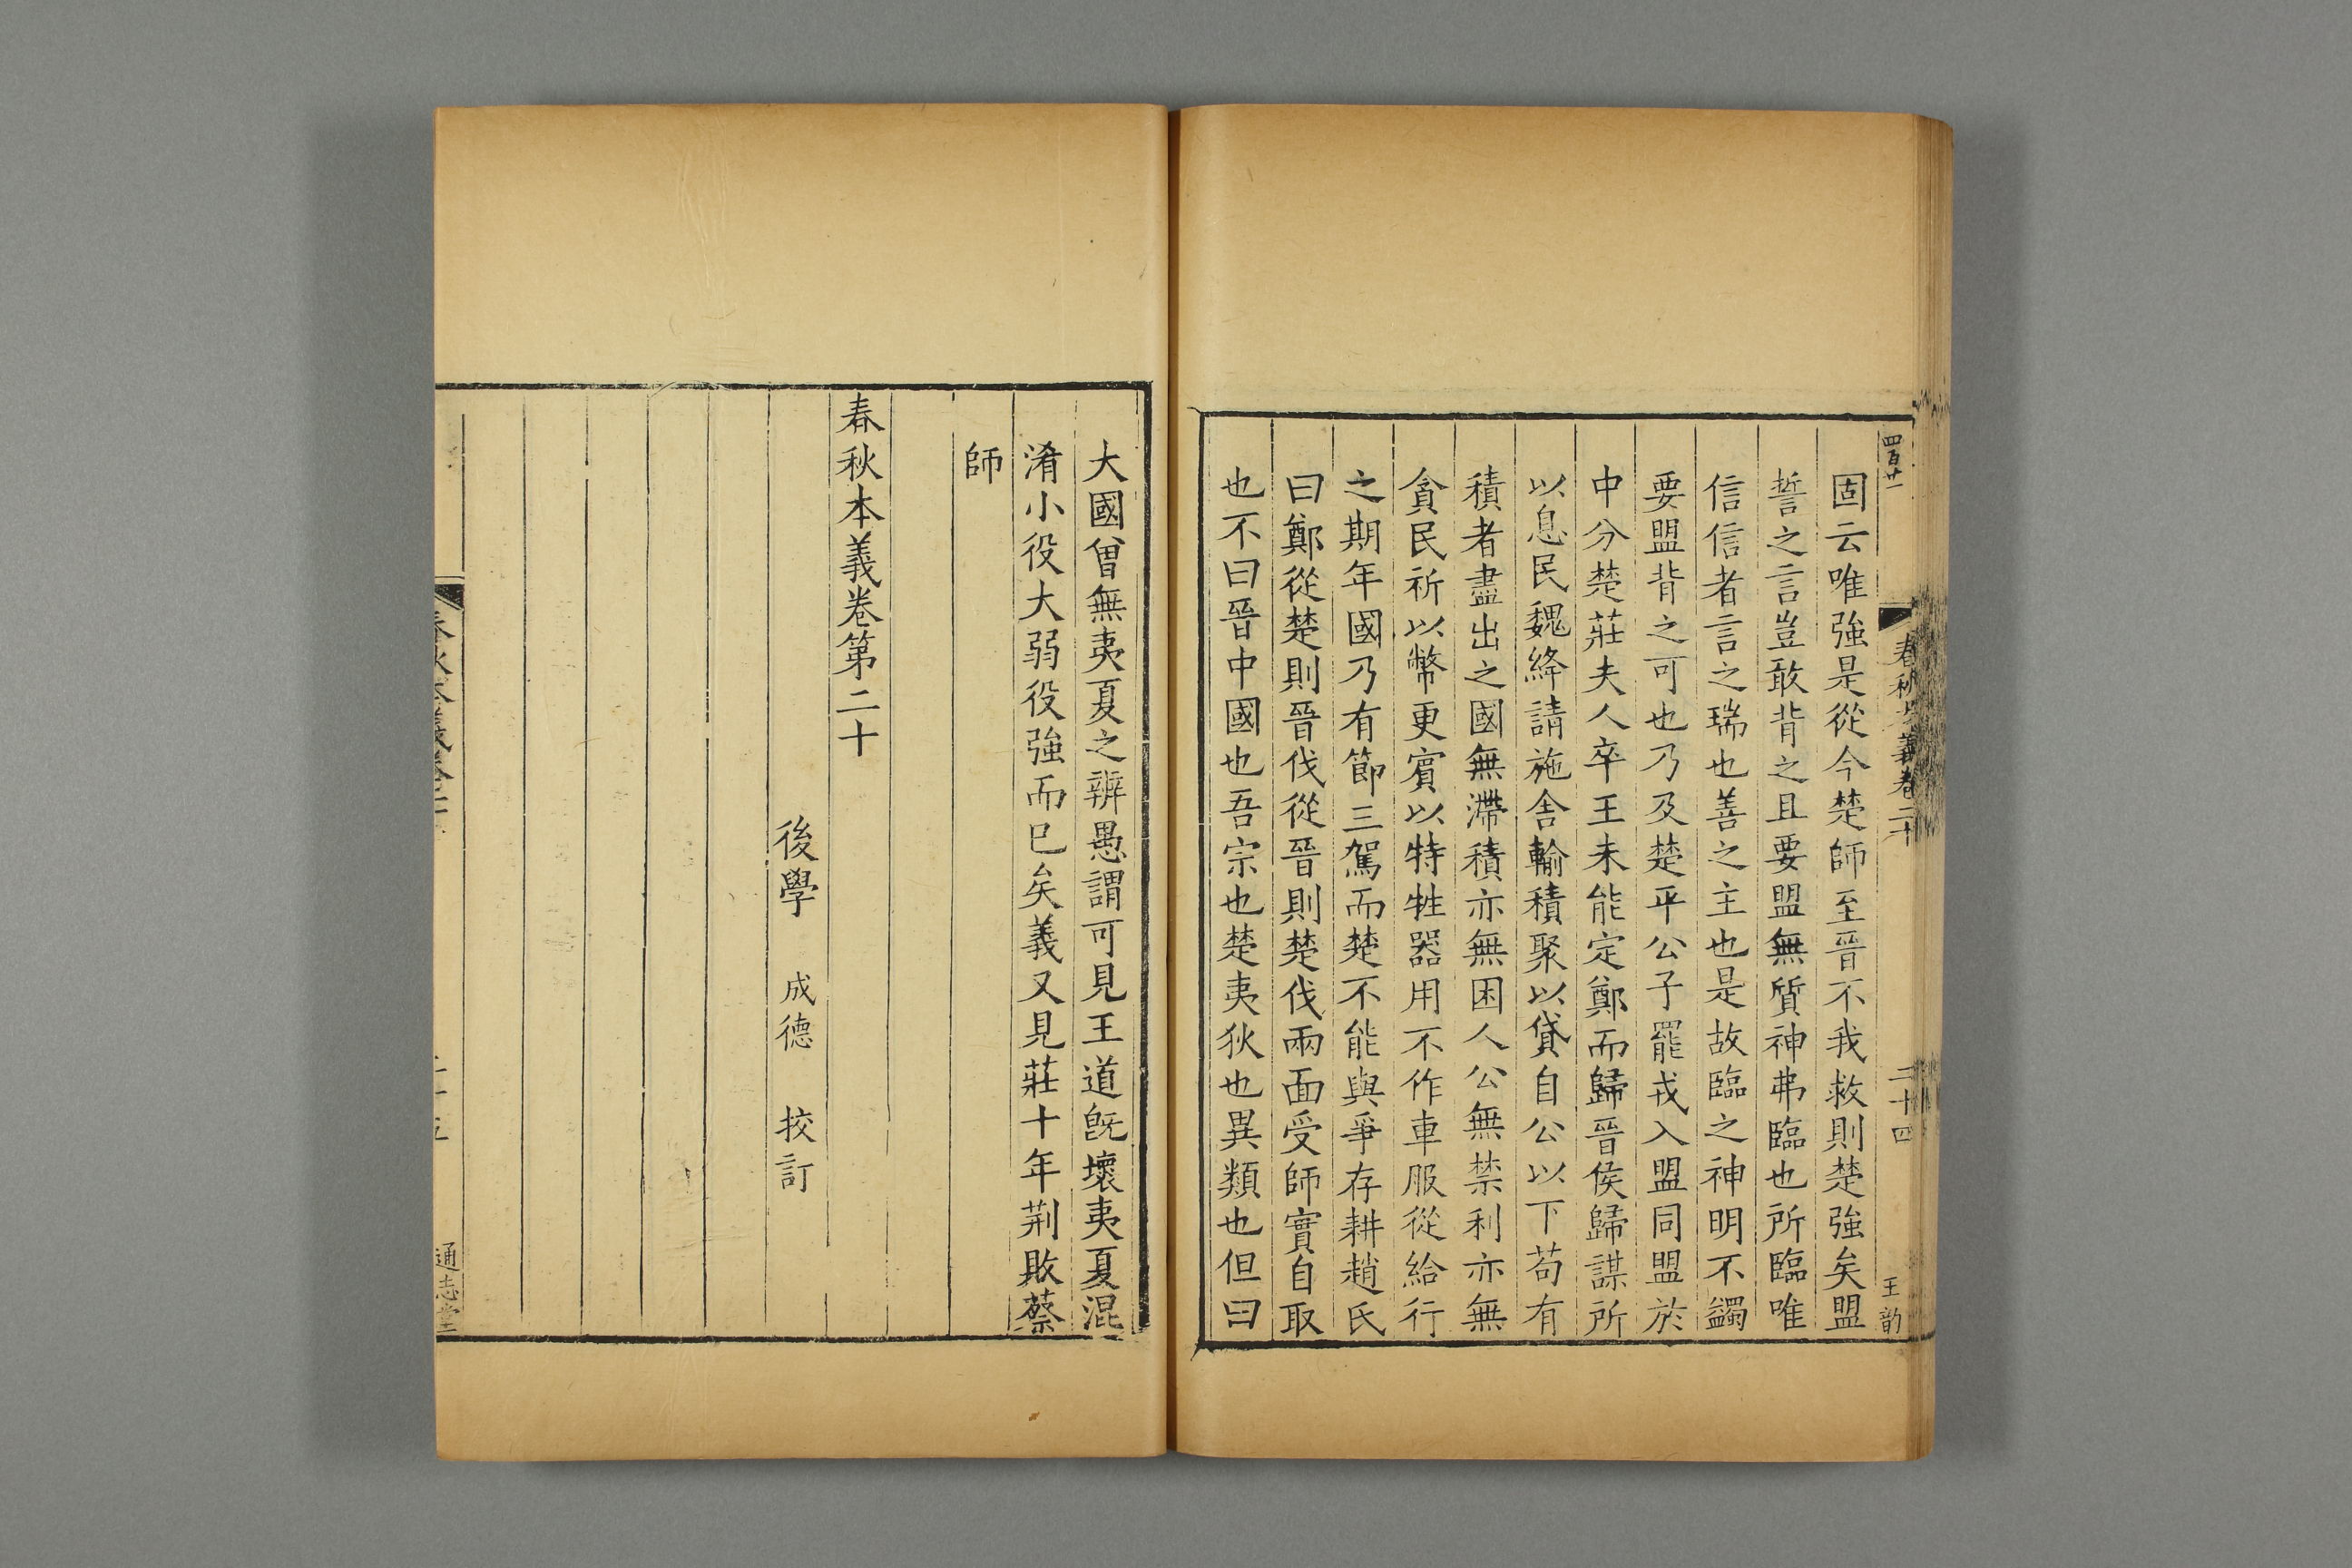 四百廿一
春秋本義卷二十
二十四
王韵
固云唯強是從今楚師至晉不我救則楚強矣盟
誓之言豈敢背之且要盟無質神弗臨也所臨唯
信信者言之瑞也善之主也是故臨之神明不蠲
要盟背之可也乃及楚平公子罷戎入盟同盟於
中分楚莊夫人卒王未能定鄭而歸晉侯歸謀所
以息民魏絳請施舍輸積聚以貸自公以下苟有
積者盡出之國無滯積亦無困人公無禁利亦無
貪民祈以幣更賓以特牲器用不作車服從給行
之期年國乃有節三駕而楚不能與爭存耕趙氏
曰鄭從楚則晉伐從晉則楚伐兩面受師實自取
也不曰晉中國也吾宗也楚夷狄也異類也但曰
大國曾無夷夏之辨愚謂可見王道旣壞夷夏混
淆小役大弱役強而已矣義又見莊十年荆敗蔡
師
春秋本義卷第二十
後學 成德 挍訂
通志堂